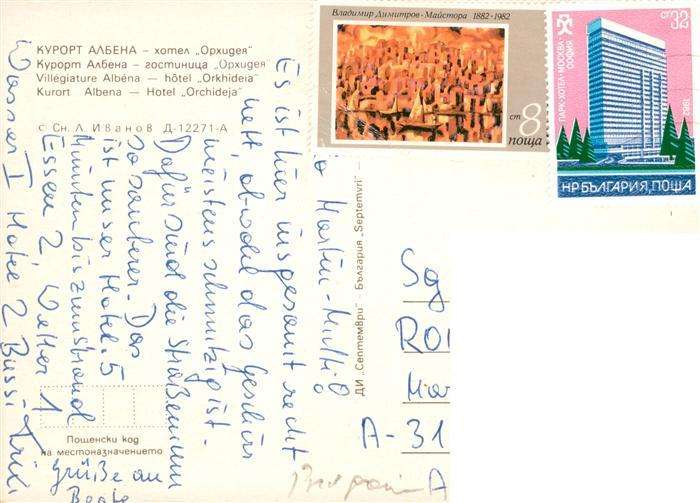 КУРОРТ АЛБЕНА – хотел „Орхидея“
Курорт Албена — гостиница „Орхидея
Villégiature Albéna — hôtel „Orkhideia“
Kurort Albena — Hotel „Orchideja“
с Сн. Л. Иванов Д-12271-А
Владимир Димитров - Майстора 1882-1982
ст 8
поща
ст 32
ПАРК-ХОТЕЛ-МОСКВА
СОФИЯ
1982
НР БЪЛГАРИЯ, ПОЩА
Es ist hier insgesamt recht
nett, obwohl das Geschirr
meistens schmutzig ist.
Dafür sind die Straßen um
so sauberer. Das
ist unser Hotel. 5
Minuten bis zum Strand
Essen 2, Wetter 1
Wasser 1 Hotel 2 Bussi
Grüße an
ДИ „Септември“ - България „Septemvri“
Sg
ROI
A-31
Пощенски код
на местоназначението